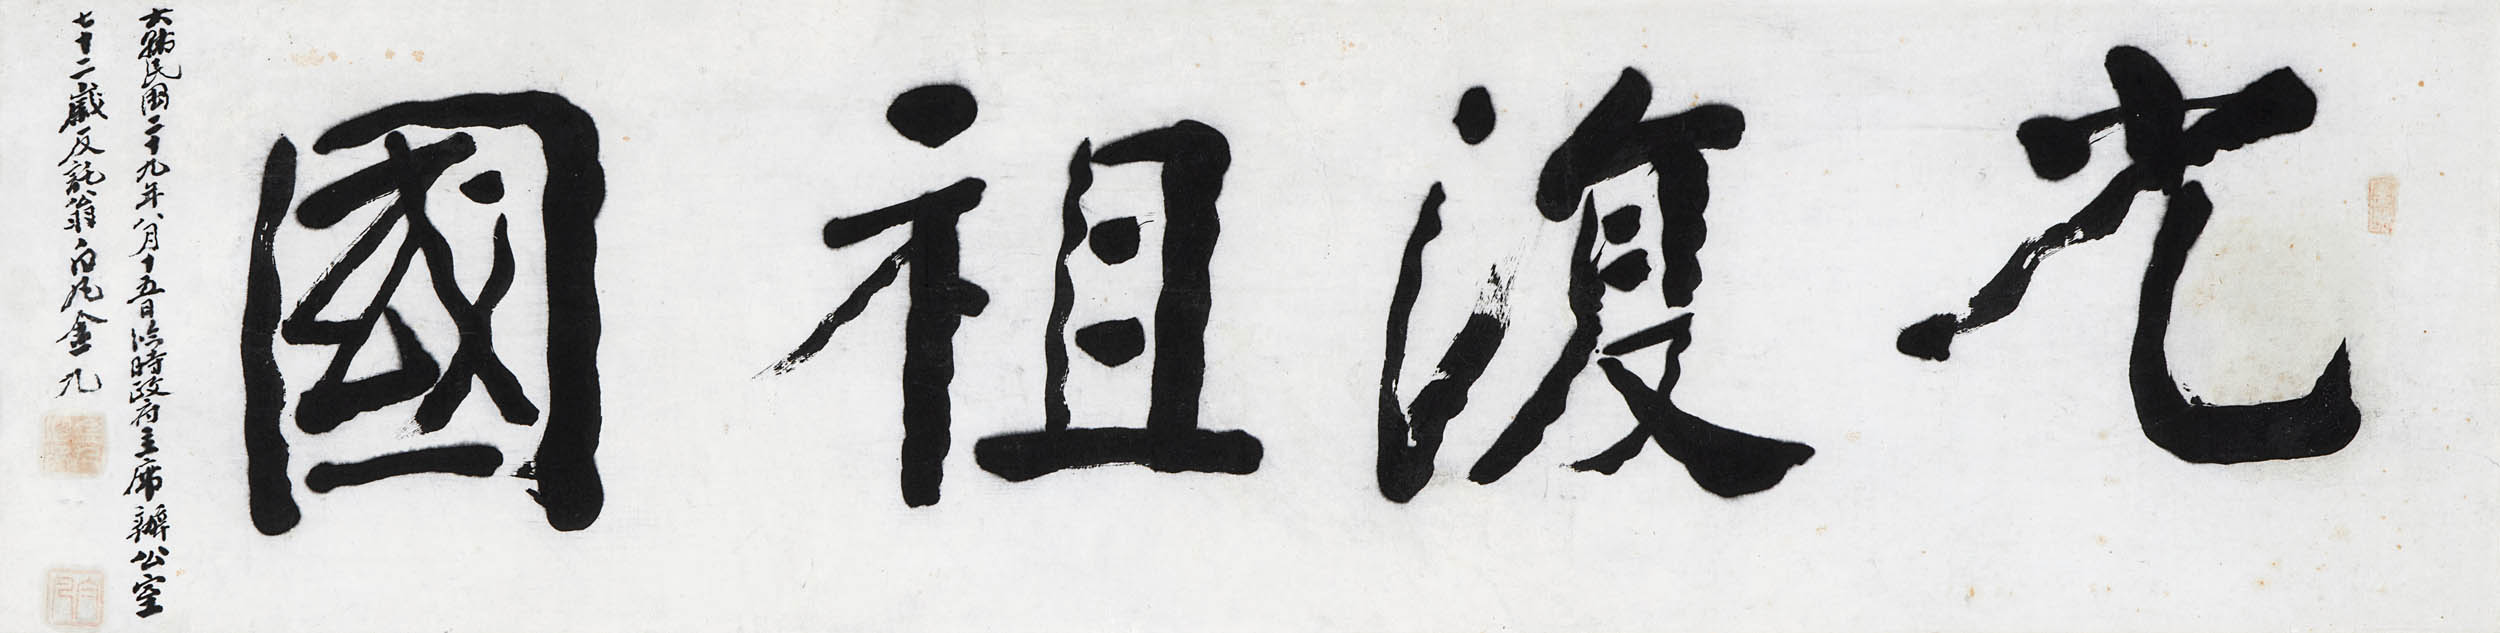 光復祖國
大韓民國二十九年八月十五日臨時政府主席辦公室
七十二歲反託翁白凡金九